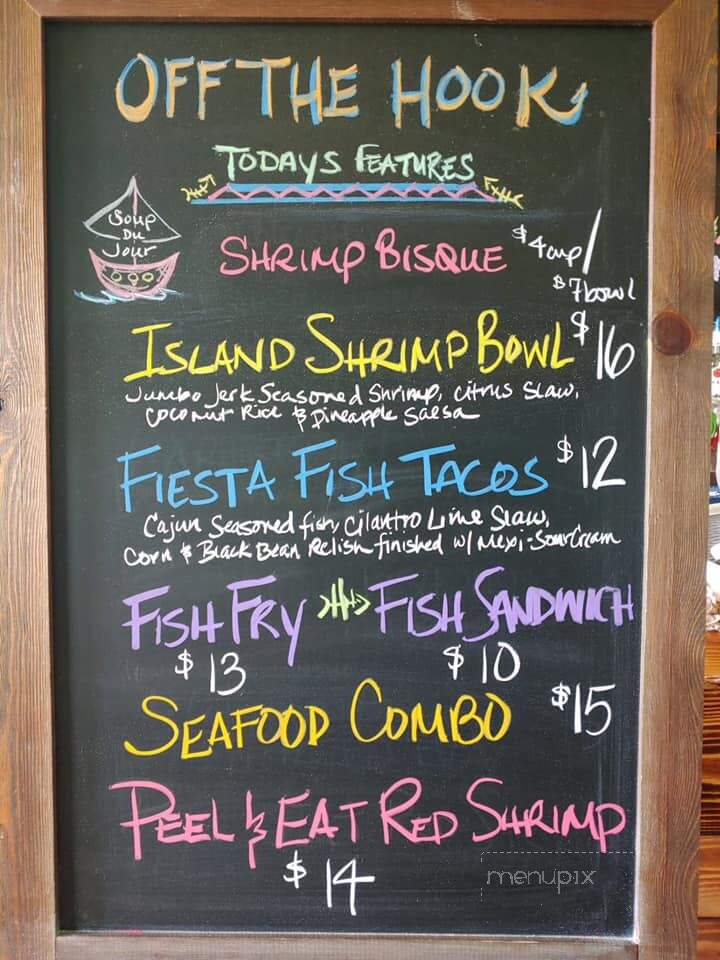 OFF THE HOOK
TODAYS FEATURES
Soup
Du
Jour
SHRIMP BISQUE
$4 cup/
$7 bowl
ISLAND SHRIMP BOWL $16
Jumbo Jerk Seasoned Shrimp, Citrus Slaw,
Coconut Rice & Pineapple Salsa
FIESTA FISH TACOS $12
Cajun Seasoned fish, Cilantro Lime Slaw,
Corn & Black Bean Relish finished w/ Mexi-Sour Cream
FISH FRY FISH SANDWICH
$13 $10
SEAFOOD COMBO $15
PEEL & EAT RED SHRIMP
$14
menupix